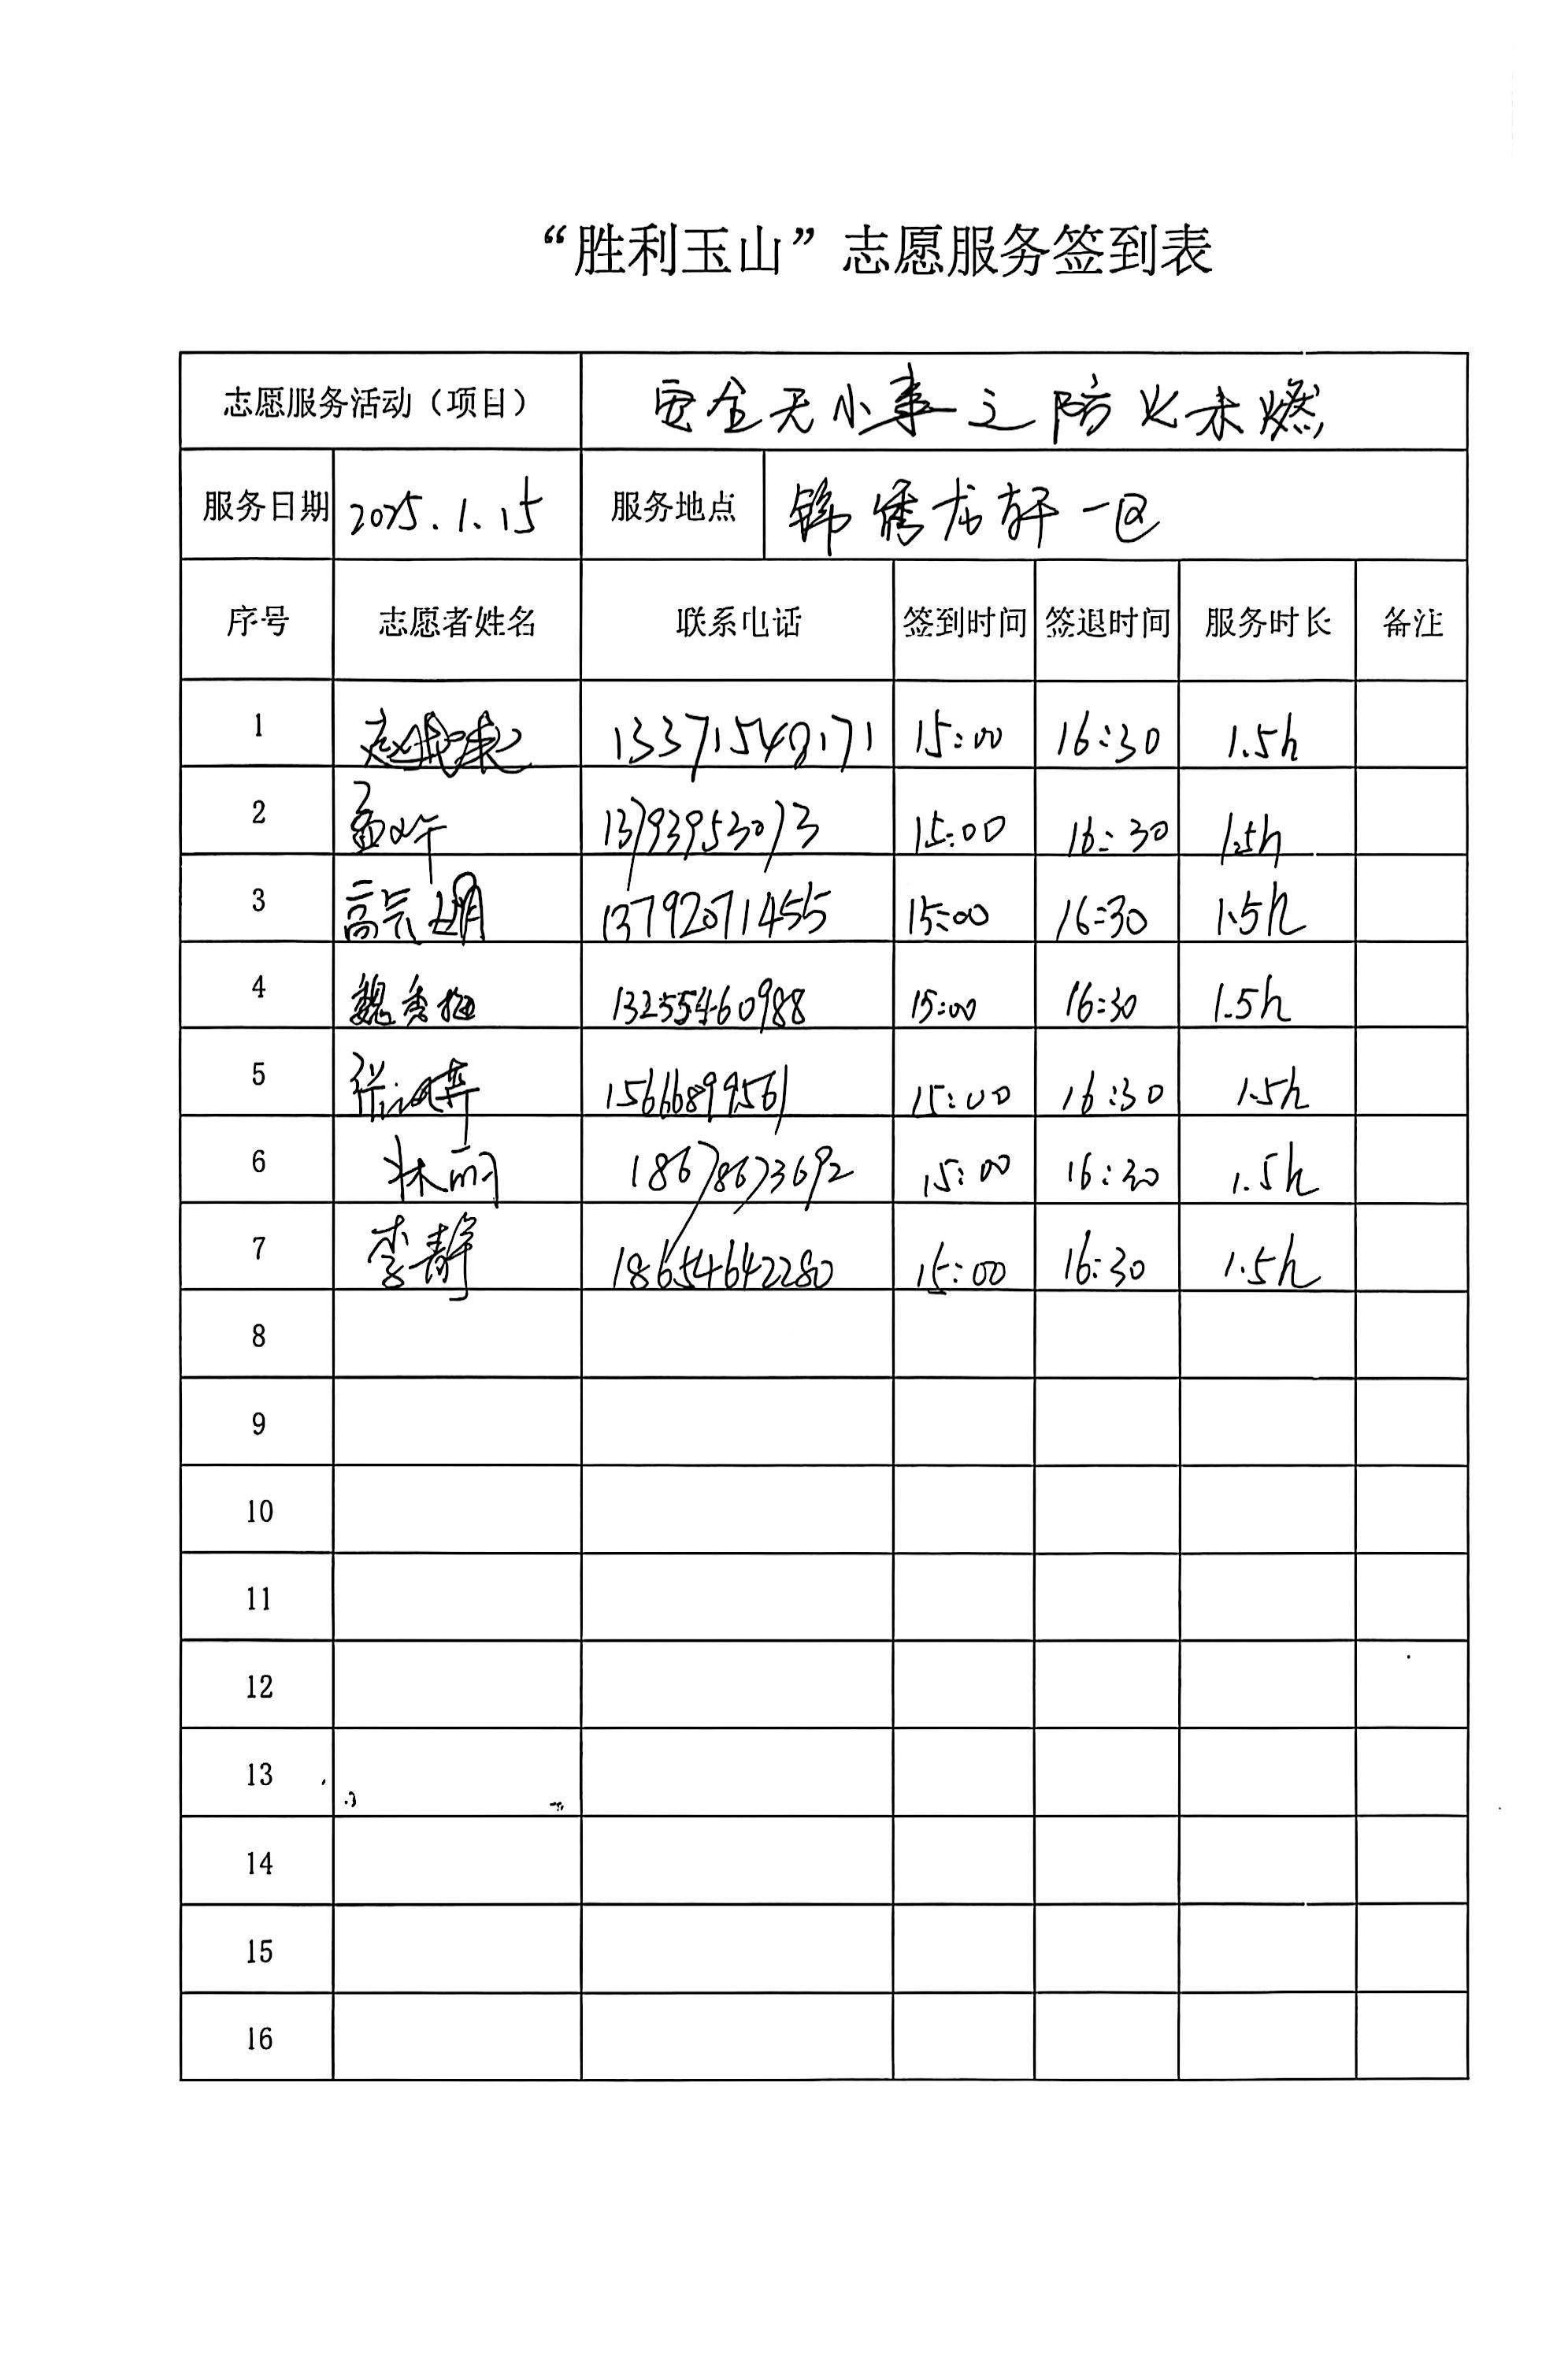 “胜利玉山”志愿服务签到表
志愿服务活动（项目） 安全无小事之防火未燃
服务日期 2025.1.15 服务地点 锦绣龙轩一区
序号 志愿者姓名 联系电话 签到时间 签退时间 服务时长 备注
1 13371548171 15:00 16:30 1.5h
2 13793953073 15:00 16:30 1.5h
3 高 13792071455 15:00 16:30 1.5h
4 魏秀梅 13255460988 15:00 16:30 1.5h
5 张 15666899561 15:00 16:30 1.5h
6 林丽 18678673692 15:00 16:30 1.5h
7 李静 18654642280 15:00 16:30 1.5h
8
9
10
11
12
13
14
15
16